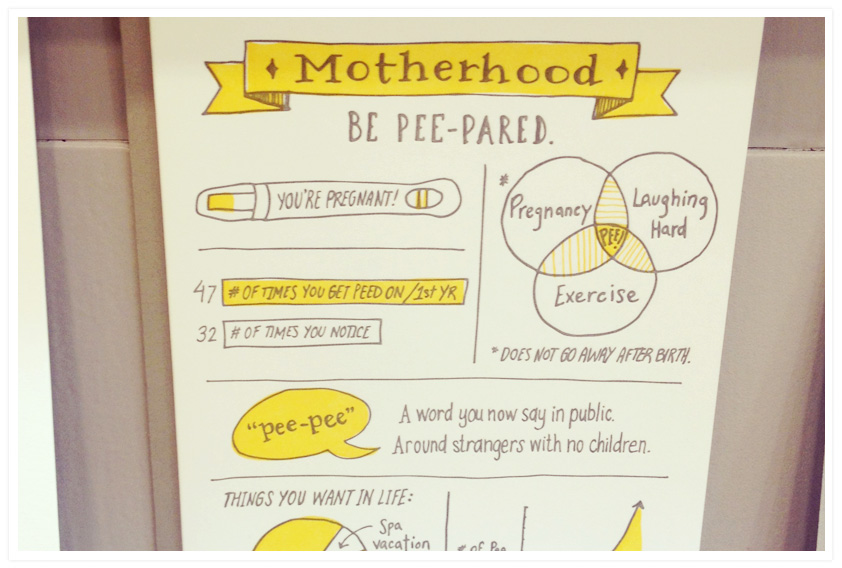 Motherhood
BE PEE-PARED.
YOU'RE PREGNANT!
47 # OF TIMES YOU GET PEED ON /1st YR
32 # OF TIMES YOU NOTICE
*
Pregnancy
Laughing
Hard
PEE!
Exercise
* DOES NOT GO AWAY AFTER BIRTH.
"pee-pee"
A word you now say in public.
Around strangers with no children.
THINGS YOU WANT IN LIFE:
Spa
vacation
# of Pee